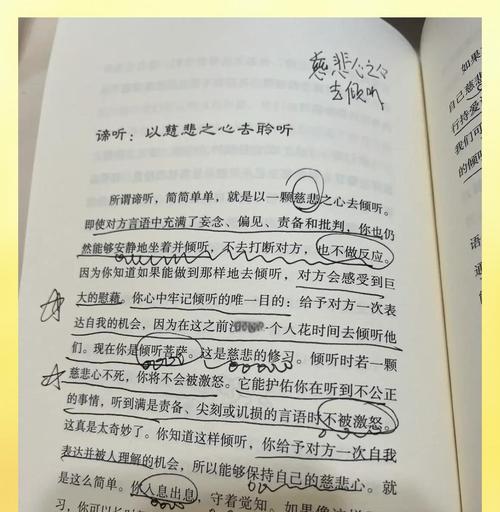 慈悲心
去倾听
谛听：以慈悲之心去聆听
所谓谛听，简简单单，就是以一颗慈悲之心去倾听。
即使对方言语中充满了妄念、偏见、责备和批判，你也仍
然能够安静地坐着并倾听，不去打断对方，也不做反应。
因为你知道如果能做到那样地去倾听，对方会感受到巨
大的慰藉。你心中牢记倾听的唯一目的：给予对方一次表
达自我的机会，因为在这之前没 一个人花时间去倾听他
们。现在你是倾听菩萨。这是慈悲的修习。倾听时若一颗
慈悲心不死，你将不会被激怒。它能护佑你在听到不公正
的事情，听到满是责备、尖刻或讥损的言语时不被激怒。
这真是太奇妙了。你知道这样倾听，你给予对方一次自我
表达并被人理解的机会，所以能够保持自己的慈悲心。就
是这么简单。你入息出息，守着觉知。如果像这样
习，你可以长时
如果
自己慈悲
行持爱
我们可
的倾听
语
通